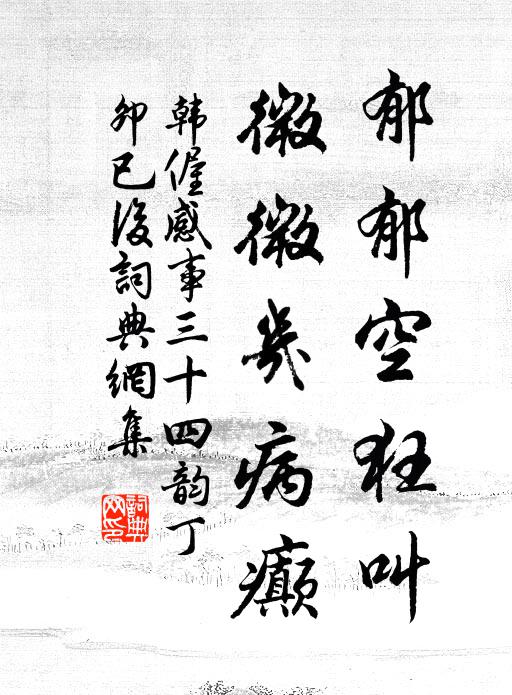 郁郁空狂叫
微微幾病癲
韩偓感事三十四韵丁
卯已後詞典網集
詞典
网印